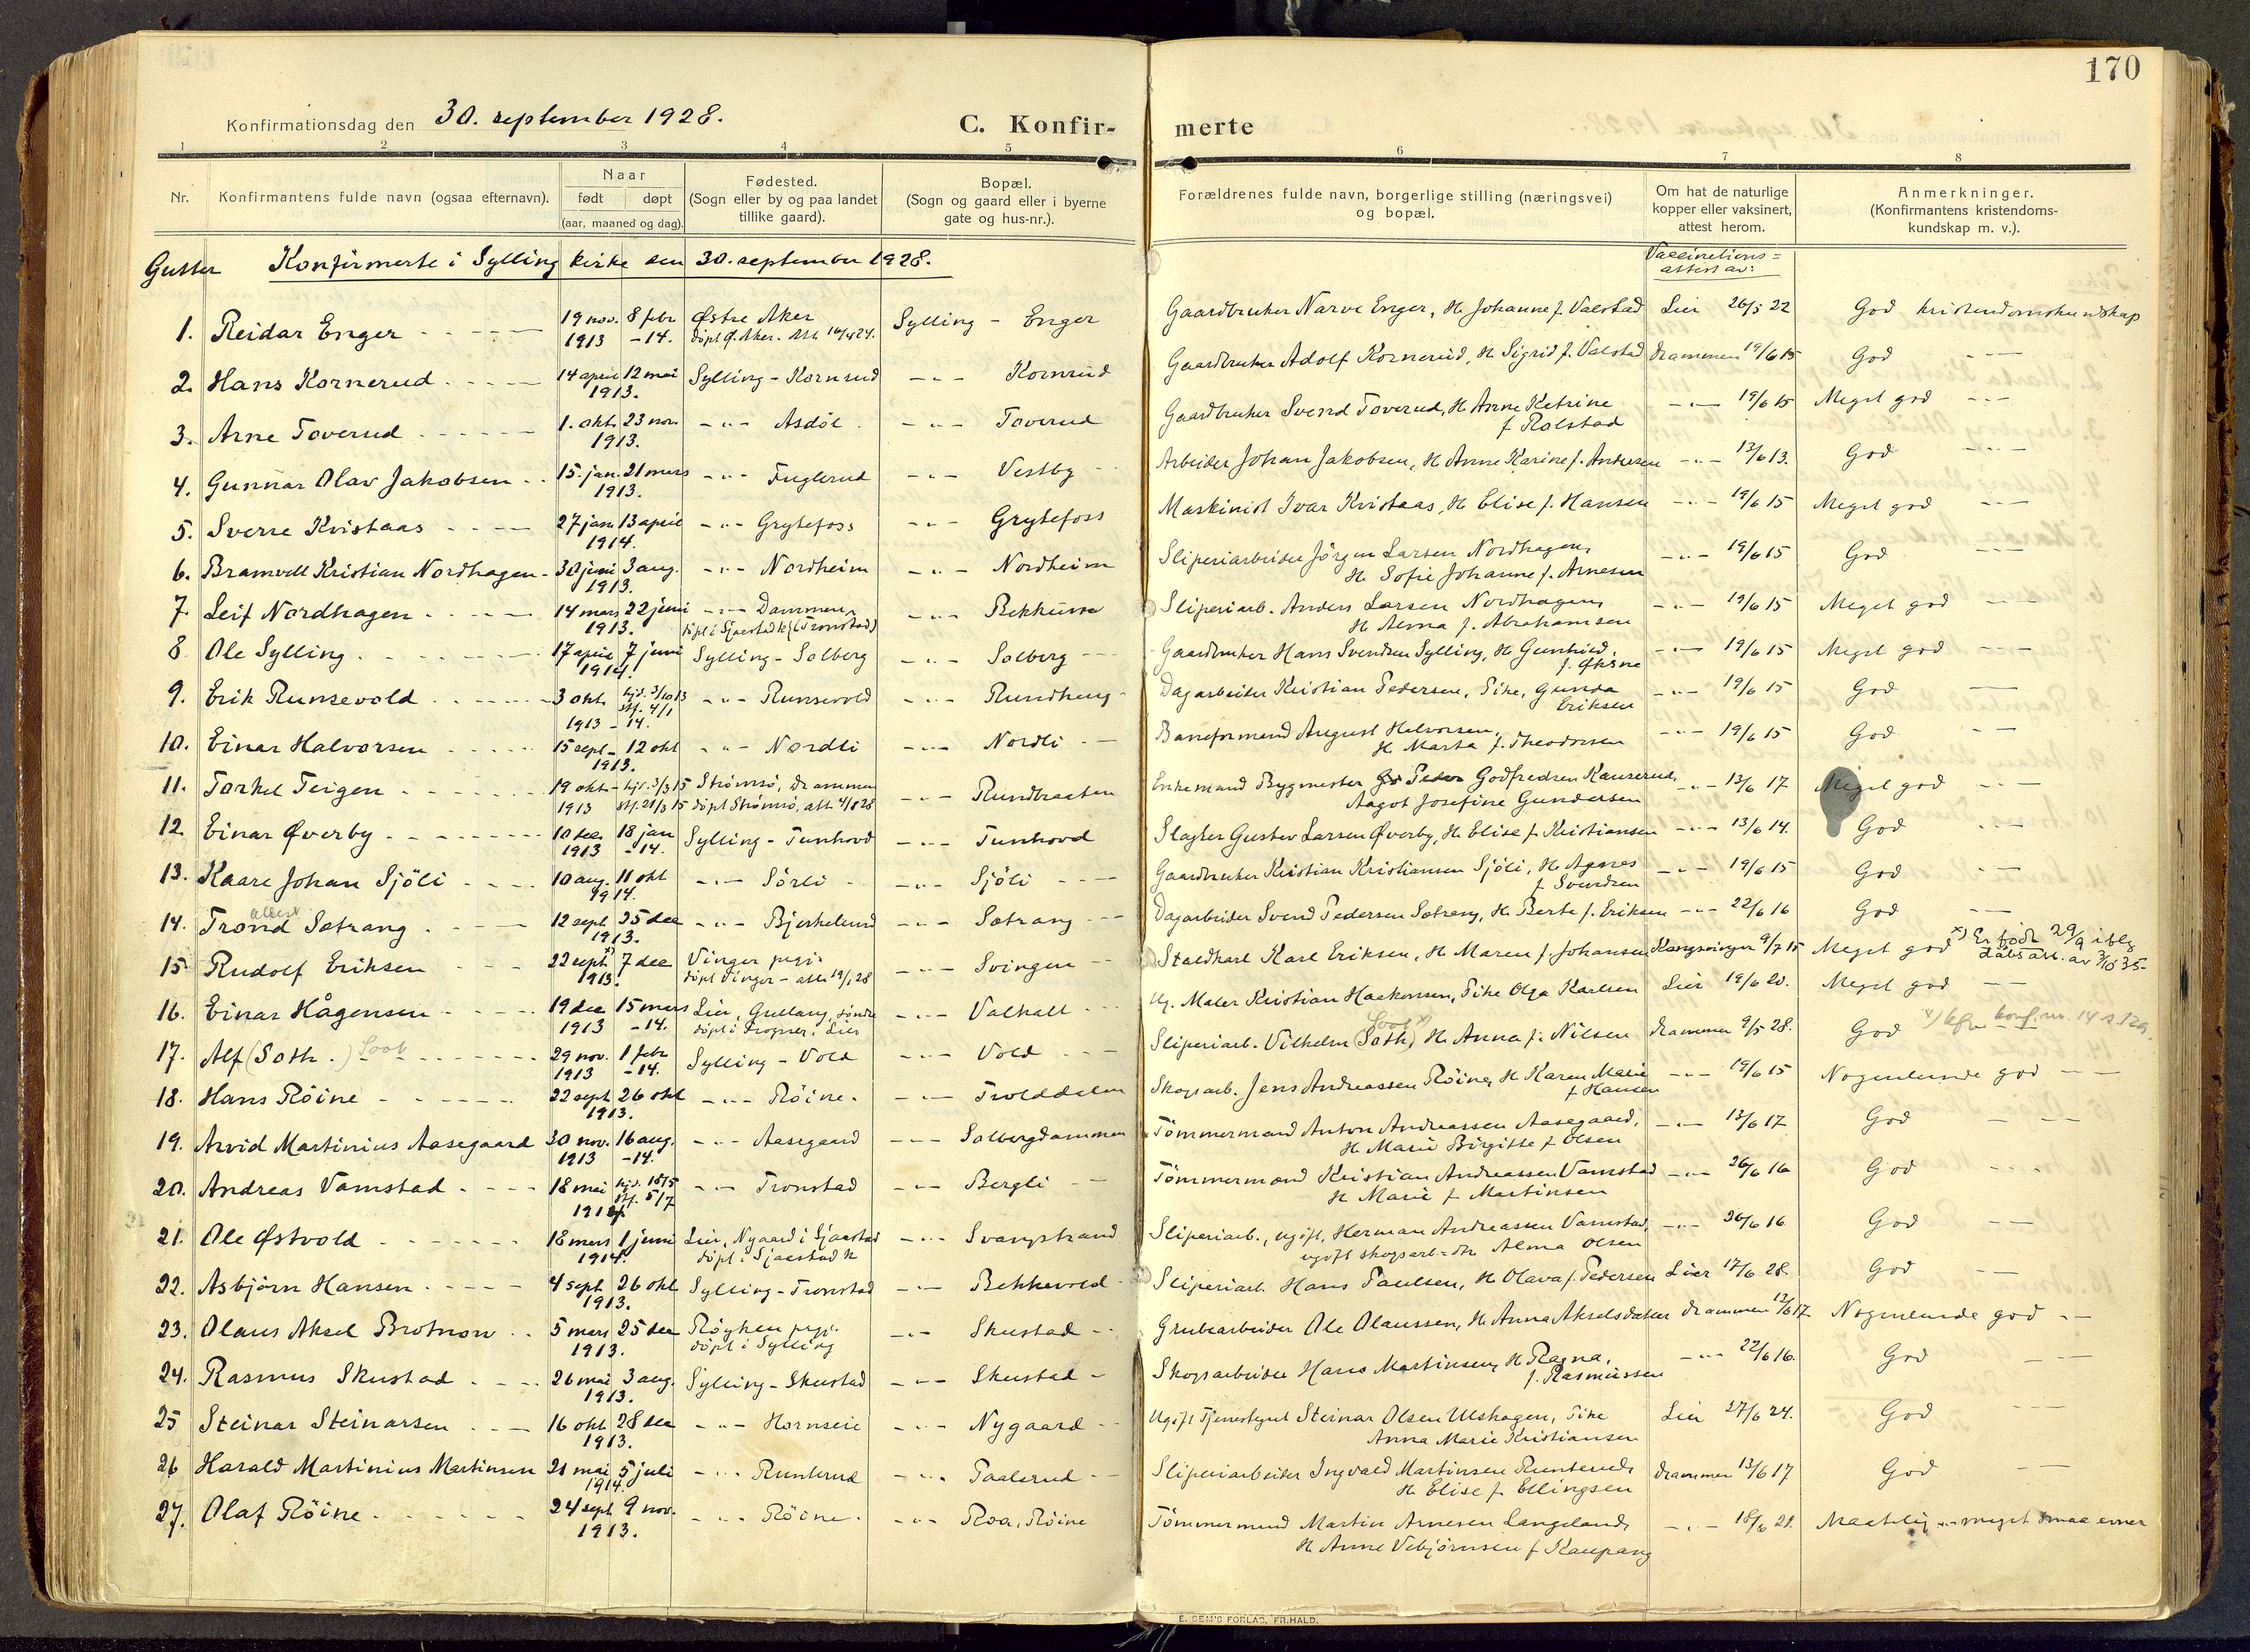 170
Konfirmationsdag den 30. september 1928.
C. Konfir-merte
1 2 3 4 5 6 7 8
Nr. Konfirmantens fulde navn (ogsaa efternavn).
Naar
født døpt
(aar, maaned og dag).
Fødested.
(Sogn eller by og paa landet
tillike gaard).
Bopæl.
(Sogn og gaard eller i byerne
gate og hus-nr.).
Forældrenes fulde navn, borgerlige stilling (næringsvei)
og bopæl.
Om hat de naturlige
kopper eller vaksinert,
attest herom.
Anmerkninger.
(Konfirmantens kristendoms-
kundskap m. v.).
Gutter Konfirmerte i Sylling kirke den 30. september 1928.
Vaccinations=
attest av:
1. Reidar Enger 19 nov. 1913 8 febr -14. Østre Aker døpt Ø. Aker. Sylling - Enger Gaardbruker Narve Enger, H. Johanne f. Valstad Lier 26/5 22 God kristendomskundskap
2. Hans Kornerud 14 april 12 mai 1913. Sylling - Kornrud -"- Kornrud Gaardbruker Adolf Kornerud, H. Sigrid f. Valstad Drammen 19/6 15 God
3. Arne Toverud 1. okt. 23 nov. 1913. -"- Asdøl -"- Toverud Gaardbruker Svend Toverud, H. Anne Katrine f. Rolstad -"- 19/6 15 Meget god
4. Gunnar Olav Jakobsen 15. jan. 21 mars 1913. -"- Fuglerud -"- Vestby Arbeider Johan Jakobsen, H. Anne Karine f. Andersen -"- 13/6 13. God
5. Sverre Kvistaas 27 jan. 13 april 1914. -"- Grytefoss -"- Grytefoss Maskinist Ivar Kvistaas, H. Elise f. Hansen -"- 19/6 15 Meget god
6. Bramvell Kristian Nordhagen 30 juni 3 aug. 1913. -"- Nordheim -"- Nordheim Sliperiarbeider Jørgen Larsen Nordhagen, H. Sofie Johanne f. Arnesen -"- 19/6 15 God
7. Leif Nordhagen 14 mars 22 juni 1913. -"- Dammen, døpt i Sjaastad k. (Tronstad) -"- Sliperiarb. Anders Larsen Nordhagen, H. Alma f. Abrahamsen -"- 19/6 15 Meget god
8 Ole Sylling 17 april 7 juni 1914. Sylling - Solberg -"- Solberg Gaardbruker Hans Svendsen Sylling, H. Gunhild, f. Øksne -"- 19/6 15 Meget god
9. Erik Runsevold 3 okt. 1913 hjd. 3/10 13 stf. 4/1 -14. -"- Runsevold -"- Rundhaug Dagarbeider Kristian Pedersen, Pike, Gunda Eriksen -"- 19/6 15 God
10. Einar Halvorsen 15 sept - 12 okt 1913. -"- Nordli -"- Nordli Baneformand August Halvorsen, H. Marta f. Theodorsen -"- 19/6 15 God
11. Torkel Teigen 19 okt. 1913 hjd. 3/3 15 stf. 21/3 15 Strømsø, Drammen døpt Strømsø, att. 4/8 28 -"- Rundbraaten Enkemand Bygmester Peder Godfredsen Kanserud, Aagot Josefine Gundersen -"- 13/6 17 Meget god
12. Einar Øverby 10 des. 1913 18 jan -14. Sylling - Tunhovd -"- Tunhovd Slagter Gustav Larsen Øverby, H. Elise f. Kristiansen -"- 13/6 14. God
13. Kaare Johan Sjöli 10 aug. 11 okt 1914. -"- Sörli -"- Sjöli Gaardbruker Kristian Kristiansen Sjöli, H. Agnes f. Svendsen -"- 19/6 15 God
14. Trond Albert Sætrang 12 sept 25 des 1913. -"- Bjerkelund -"- Sætrang Dagarbeider Svend Pedersen Sætrang, H. Berte f. Eriksen -"- 22/6 16 God
15 Rudolf Eriksen 22 sept x) 7 des 1913. Vinger pegj. døpt Vinger - att. 19/1 28 -"- Svingen Staldkarl Karl Eriksen, H. Maren f. Johansen Kongsvinger 9/7 15 Meget god x) Er født 29/9 iflg dåbsatt. av 3/10 35-
16. Einar Hågensen 19 des 1913 15 mars -14. Lier, Gullaug, søndre døpt i Frogner, Lier -"- Valhall Ug. Maler Kristian Haakonsen, Pike Olga Karlsen Lier 19/6 20. Meget god
17. Alf (Soth.) Soot 29 nov. 1913 1 febr -14. Sylling - Vold -"- Vold Sliperiarb. Vilhelm (Soth) Soot x) H. Anna f. Nilsen Drammen 9/5 28. God x) konf. nr. 14 s. 129
18. Hans Röine 22 sept 26 okt 1913. -"- Röine. -"- Trolddalen Skogsarb. Jens Andreassen Röine, H. Karen Marie f. Hansen -"- 19/6 15 Nogenlunde god
19. Arvid Martinius Aasegaard 30 nov. 1913 16 aug. -14. -"- Aasegaard -"- Solbergdammen Tömmermand Anton Andreassen Aasegaard, H. Marie Birgitte f. Olsen -"- 13/6 17 God
20. Andreas Vamstad 18 mai 1914 hjd. 18/5 stf. 5/7 -"- Tronstad -"- Bergli Tömmermand Kristian Andreassen Vamstad H. Marie f. Martinsen -"- 26/6 16 God
21. Ole Østvold 18 mars 1 juni 1914. Lier, Nygaard i Sjaastad døpt i Sjaastad k -"- Svangstrand Sliperiarb., ugift, Herman Andreassen Vamstad, ugift skogsarb. dtr. Alma Olsen -"- 26/6 16 God
22. Asbjørn Hansen 4 sept 26 okt 1913. Sylling - Tronstad -"- Bekkevold Sliperiarb. Hans Paulsen, H. Olava f. Pedersen Lier 17/6 28. God
23. Olaus Aksel Brotnow 5 mars 25 des 1913. Röyken pegj. døpt i Sylling -"- Skustad Grubearbeider Ole Olaussen, H. Anna Akselsdatter Drammen 13/6 17 Nogenlunde god
24. Rasmus Skustad 26 mai 3 aug. 1913. Sylling - Skustad -"- Skustad Skogsarbeider Hans Martinsen, H. Ragna, f. Rasmussen -"- 22/6 16. God
25 Steinar Steinarsen 16 okt. 28 des 1913. -"- Hornseie -"- Nygaard Ugift Tjenestegut Steinar Olsen Ulshagen, Pike Anna Marie Kristiansen Lier 27/6 24. God
26 Harald Martinius Martinsen 21 mai 5 juli 1914. -"- Runterud -"- Paalsrud Sliperiarbeider Ingvald Martinsen Runterud, H. Elise f. Ellingsen Drammen 13/6 17 God
27. Olaf Röine 24 sept 9 nov. 1913. -"- Röine. -"- Roa, Röine Tömmermand Martin Arnesen Langeland, H. Anne Vebjørnsen f. Kaupang -"- 18/6 21. Maatelig - meget smaa evner
E. SEM'S FORLAG, FR.HALD.